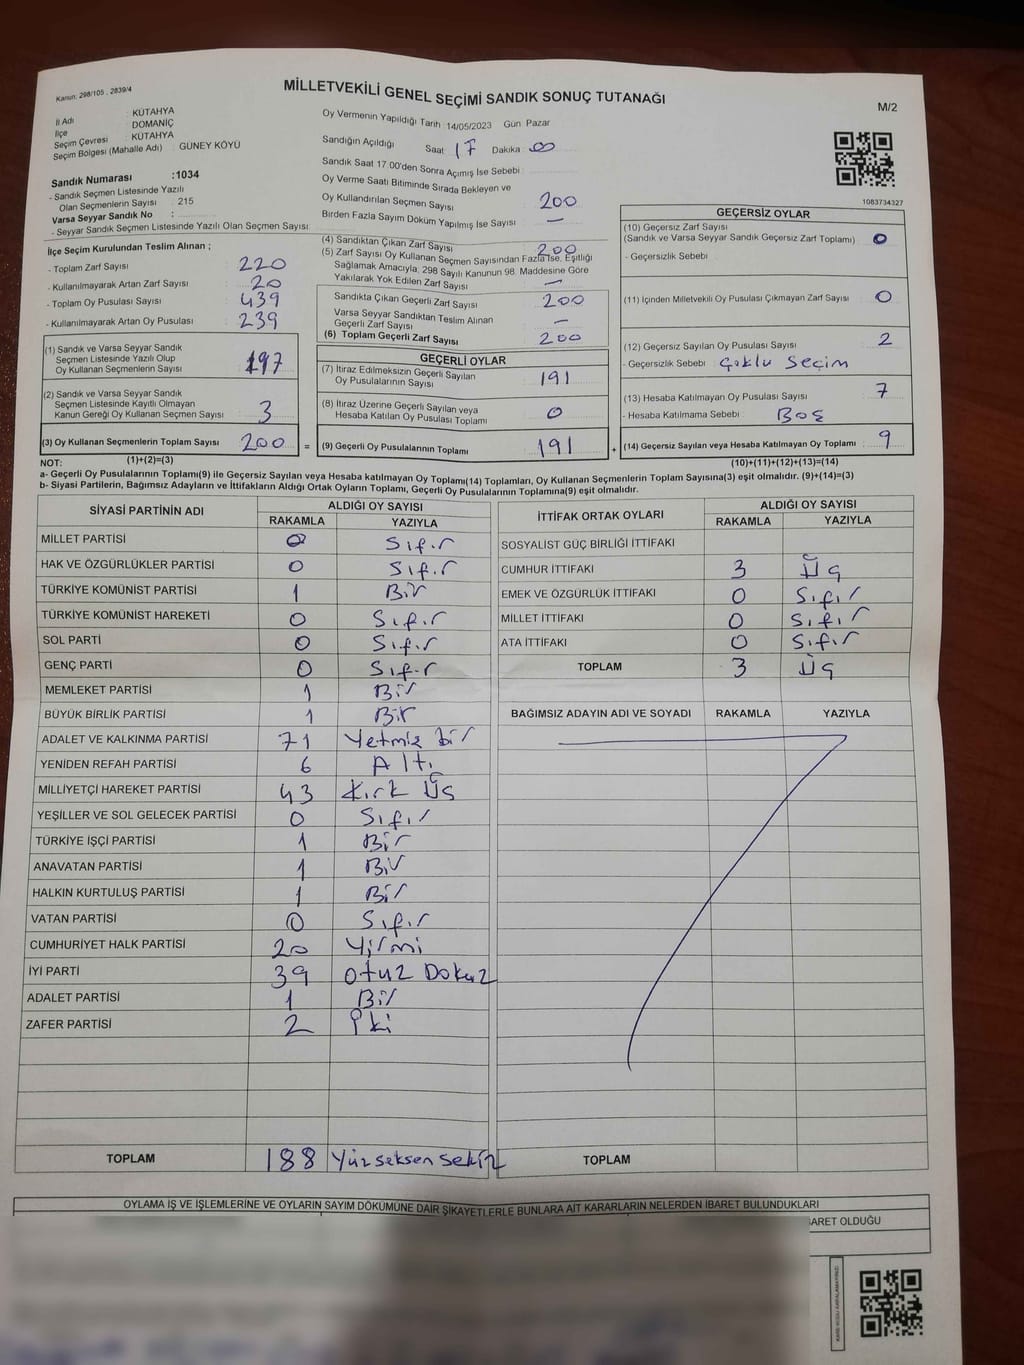 Kanun: 298/105 , 2839/4
MİLLETVEKİLİ GENEL SEÇİMİ SANDIK SONUÇ TUTANAĞI
M/2
İl Adı : KÜTAHYA
İlçe DOMANİÇ
Seçim Çevresi : KÜTAHYA
Seçim Bölgesi (Mahalle Adı) : GÜNEY KÖYÜ
Sandık Numarası :1034
- Sandık Seçmen Listesinde Yazılı
Olan Seçmenlerin Sayısı : 215
Varsa Seyyar Sandık No :
- Seyyar Sandık Seçmen Listesinde Yazılı Olan Seçmen Sayısı:
Oy Vermenin Yapıldığı Tarih :14/05/2023 Gün: Pazar
Sandığın Açıldığı Saat 17 Dakika 00
Sandık Saat 17.00'den Sonra Açımış İse Sebebi :
Oy Verme Saati Bitiminde Sırada Bekleyen ve
Oy Kullandırılan Seçmen Sayısı 200
Birden Fazla Sayım Döküm Yapılmış İse Sayısı : —
1083734327
İlçe Seçim Kurulundan Teslim Alınan ;
- Toplam Zarf Sayısı 220
- Kullanılmayarak Artan Zarf Sayısı 20
- Toplam Oy Pusulası Sayısı 439
- Kullanılmayarak Artan Oy Pusulası 239
(1) Sandık ve Varsa Seyyar Sandık
Seçmen Listesinde Yazılı Olup
Oy Kullanan Seçmenlerin Sayısı 197
(2) Sandık ve Varsa Seyyar Sandık
Seçmen Listesinde Kayıtlı Olmayan
Kanun Gereği Oy Kullanan Seçmen Sayısı 3
(3) Oy Kullanan Seçmenlerin Toplam Sayısı 200 =
(1)+(2)=(3)
(4) Sandıktan Çıkan Zarf Sayısı 200
(5) Zarf Sayısı Oy Kullanan Seçmen Sayısından Fazla İse, Eşitliği
Sağlamak Amacıyla, 298 Sayılı Kanunun 98. Maddesine Göre
Yakılarak Yok Edilen Zarf Sayısı —
Sandıkta Çıkan Geçerli Zarf Sayısı 200
Varsa Seyyar Sandıktan Teslim Alınan
Geçerli Zarf Sayısı —
(6) Toplam Geçerli Zarf Sayısı 200
GEÇERLİ OYLAR
(7) İtiraz Edilmeksizin Geçerli Sayılan
Oy Pusulalarının Sayısı 191
(8) İtiraz Üzerine Geçerli Sayılan veya
Hesaba Katılan Oy Pusulası Toplamı 0
(9) Geçerli Oy Pusulalarının Toplamı 191 +
GEÇERSİZ OYLAR
(10) Geçersiz Zarf Sayısı
(Sandık ve Varsa Seyyar Sandık Geçersiz Zarf Toplamı) 0
- Geçersizlik Sebebi
(11) İçinden Milletvekili Oy Pusulası Çıkmayan Zarf Sayısı 0
(12) Geçersiz Sayılan Oy Pusulası Sayısı 2
- Geçersizlik Sebebi Çoklu Seçim
(13) Hesaba Katılmayan Oy Pusulası Sayısı 7
- Hesaba Katılmama Sebebi : Boş
(14) Geçersiz Sayılan veya Hesaba Katılmayan Oy Toplamı 9
(10)+(11)+(12)+(13)=(14)
NOT:
a- Geçerli Oy Pusulalarının Toplamı(9) ile Geçersiz Sayılan veya Hesaba katılmayan Oy Toplamı(14) Toplamları, Oy Kullanan Seçmenlerin Toplam Sayısına(3) eşit olmalıdır. (9)+(14)=(3)
b- Siyasi Partilerin, Bağımsız Adayların ve İttifakların Aldığı Ortak Oyların Toplamı, Geçerli Oy Pusulalarının Toplamına(9) eşit olmalıdır.
SİYASİ PARTİNİN ADI ALDIĞI OY SAYISI
RAKAMLA YAZIYLA
MİLLET PARTİSİ 0 Sıfır
HAK VE ÖZGÜRLÜKLER PARTİSİ 0 Sıfır
TÜRKİYE KOMÜNİST PARTİSİ 1 Bir
TÜRKİYE KOMÜNİST HAREKETİ 0 Sıfır
SOL PARTİ 0 Sıfır
GENÇ PARTİ 0 Sıfır
MEMLEKET PARTİSİ 1 Bir
BÜYÜK BİRLİK PARTİSİ 1 Bir
ADALET VE KALKINMA PARTİSİ 71 Yetmiş bir
YENİDEN REFAH PARTİSİ 6 Altı
MİLLİYETÇİ HAREKET PARTİSİ 43 Kırk Üç
YEŞİLLER VE SOL GELECEK PARTİSİ 0 Sıfır
TÜRKİYE İŞÇİ PARTİSİ 1 Bir
ANAVATAN PARTİSİ 1 Bir
HALKIN KURTULUŞ PARTİSİ 1 Bir
VATAN PARTİSİ 0 Sıfır
CUMHURİYET HALK PARTİSİ 20 Yirmi
İYİ PARTİ 39 Otuz Dokuz
ADALET PARTİSİ 1 Bir
ZAFER PARTİSİ 2 İki
TOPLAM 188 Yüzseksen sekiz
İTTİFAK ORTAK OYLARI ALDIĞI OY SAYISI
RAKAMLA YAZIYLA
SOSYALİST GÜÇ BİRLİĞİ İTTİFAKI
CUMHUR İTTİFAKI 3 Üç
EMEK VE ÖZGÜRLÜK İTTİFAKI 0 Sıfır
MİLLET İTTİFAKI 0 Sıfır
ATA İTTİFAKI 0 Sıfır
TOPLAM 3 Üç
BAĞIMSIZ ADAYIN ADI VE SOYADI RAKAMLA YAZIYLA
TOPLAM
OYLAMA İŞ VE İŞLEMLERİNE VE OYLARIN SAYIM DÖKÜMÜNE DAİR ŞİKAYETLERLE BUNLARA AİT KARARLARIN NELERDEN İBARET BULUNDUKLARI
BARET OLDUĞU